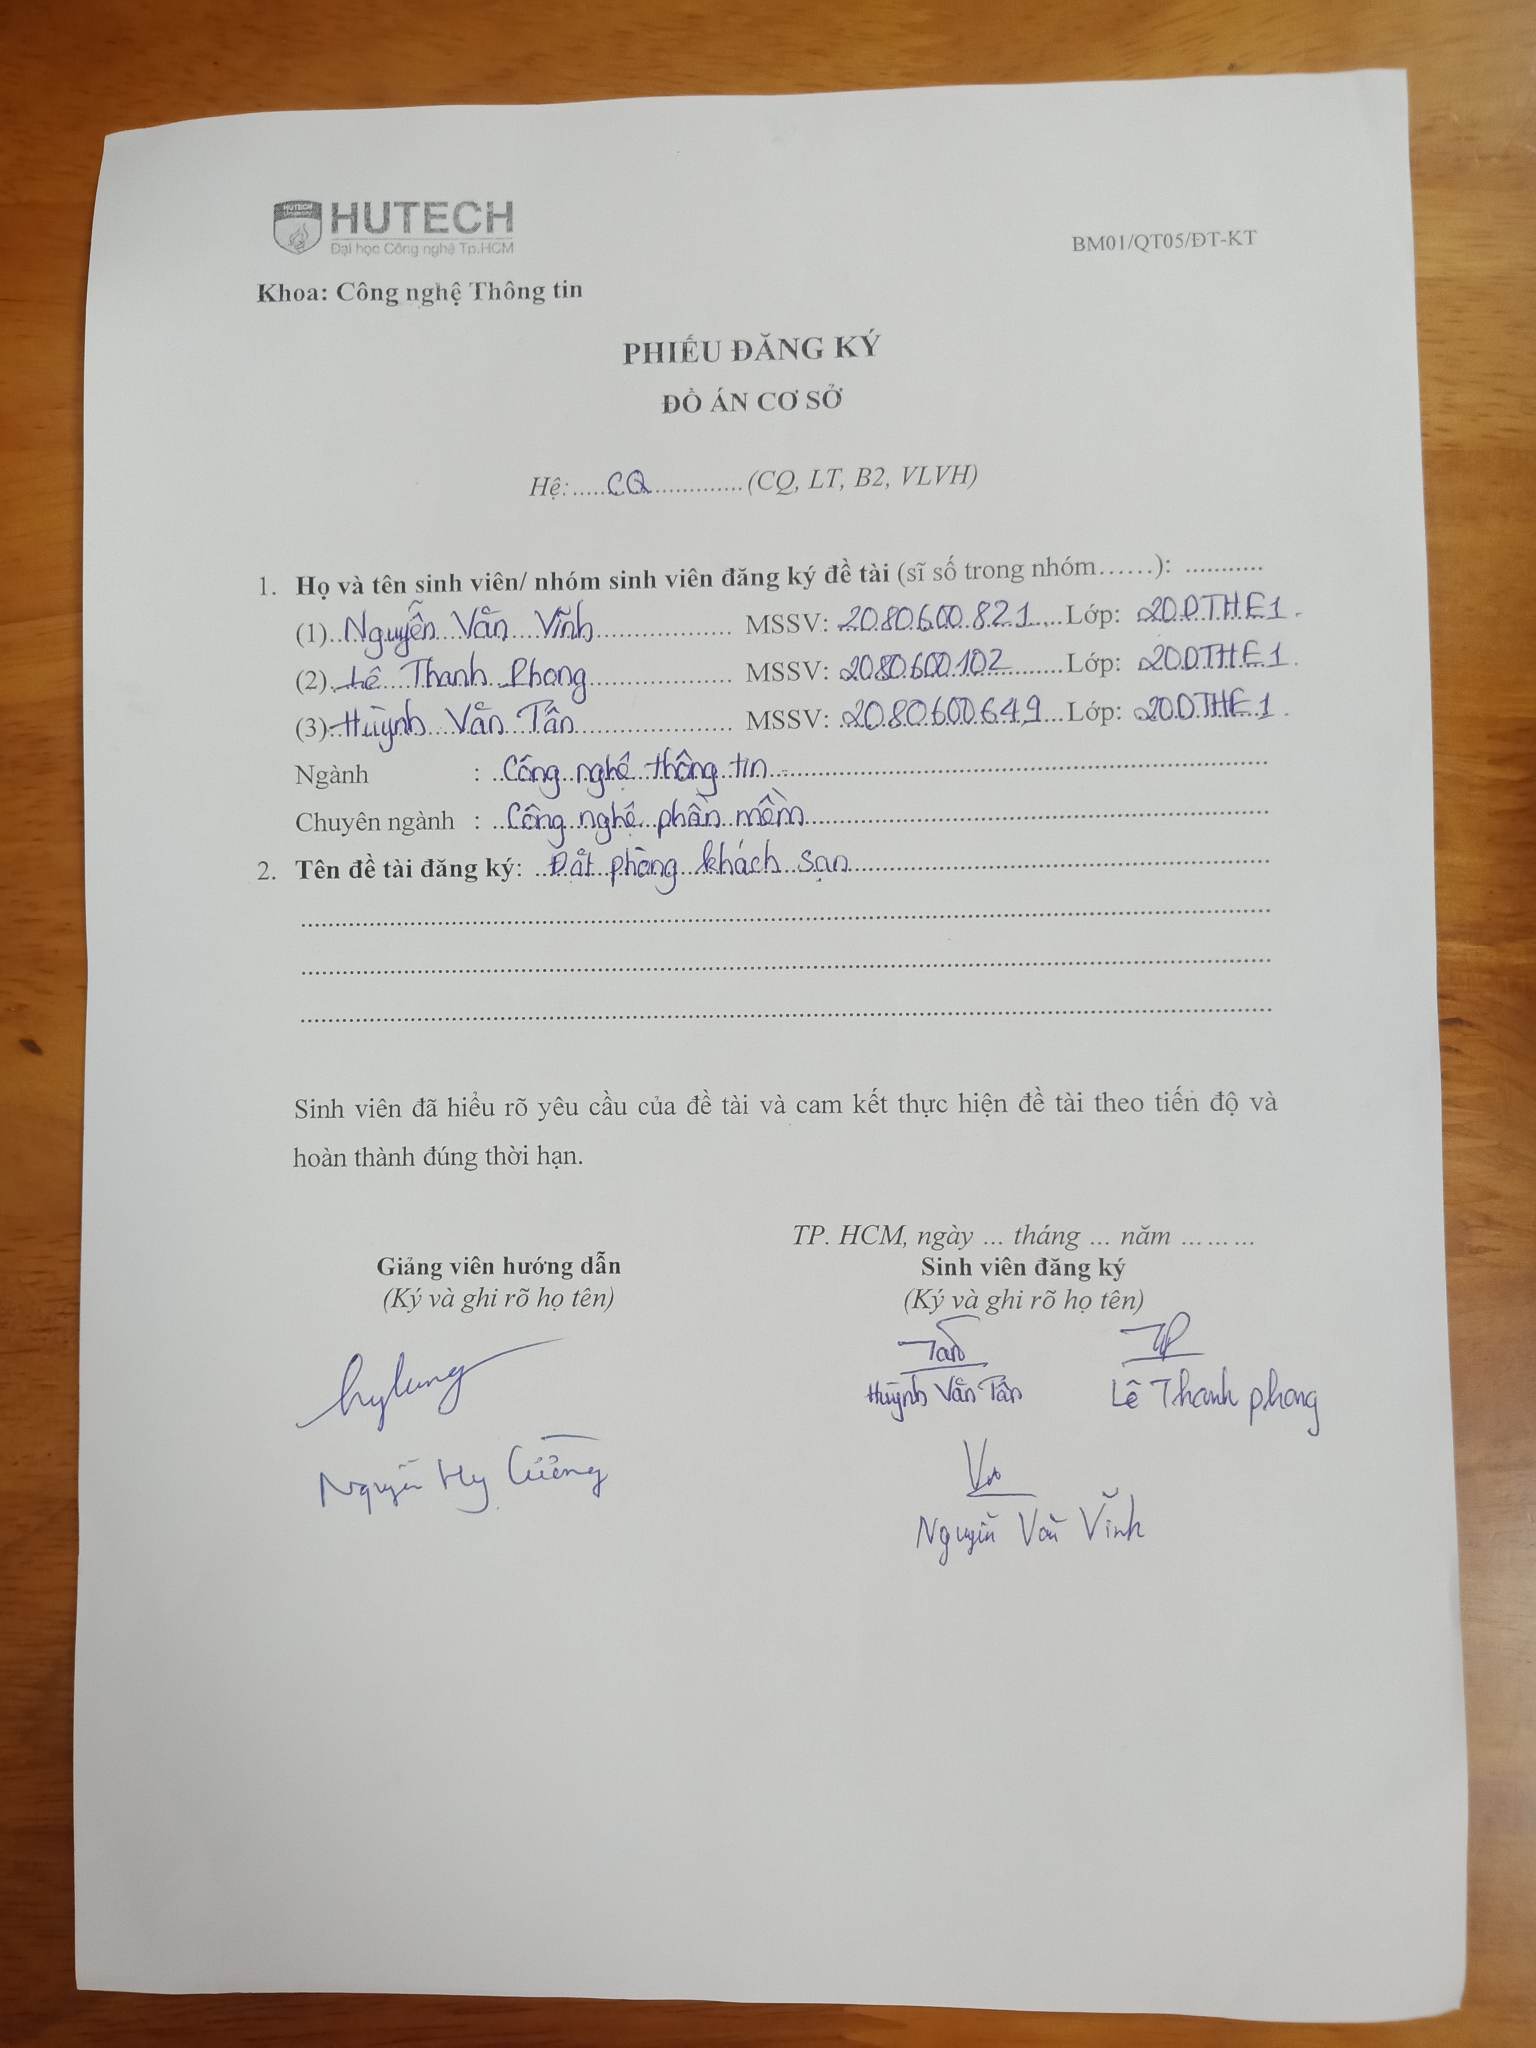 HUTECH
University
HUTECH
Đại học Công nghệ Tp.HCM
BM01/QT05/ĐT-KT
Khoa: Công nghệ Thông tin
PHIẾU ĐĂNG KÝ
ĐỒ ÁN CƠ SỞ
Hệ:.....CQ..............(CQ, LT, B2, VLVH)
1. Họ và tên sinh viên/ nhóm sinh viên đăng ký đề tài (sĩ số trong nhóm......): ............
(1)..Nguyễn Văn Vĩnh..................... MSSV: 2080600821....Lớp: 20DTHE1.
(2)..Lê Thanh Phong..................... MSSV: 2080600102........Lớp: 20DTHE1.
(3)..Huỳnh Văn Tấn....................... MSSV: 2080600649...Lớp: 20DTHE1.
Ngành : ..Công nghệ thông tin..................................................
Chuyên ngành : ..Công nghệ phần mềm..................................................
2. Tên đề tài đăng ký: ..Đặt phòng khách sạn..................................................
Sinh viên đã hiểu rõ yêu cầu của đề tài và cam kết thực hiện đề tài theo tiến độ và
hoàn thành đúng thời hạn.
TP. HCM, ngày ... tháng ... năm .........
Giảng viên hướng dẫn Sinh viên đăng ký
(Ký và ghi rõ họ tên) (Ký và ghi rõ họ tên)
Tấn TP
Huỳnh Văn Tấn Lê Thanh phong
Nguyễn Huy Cường
Nguyễn Văn Vĩnh